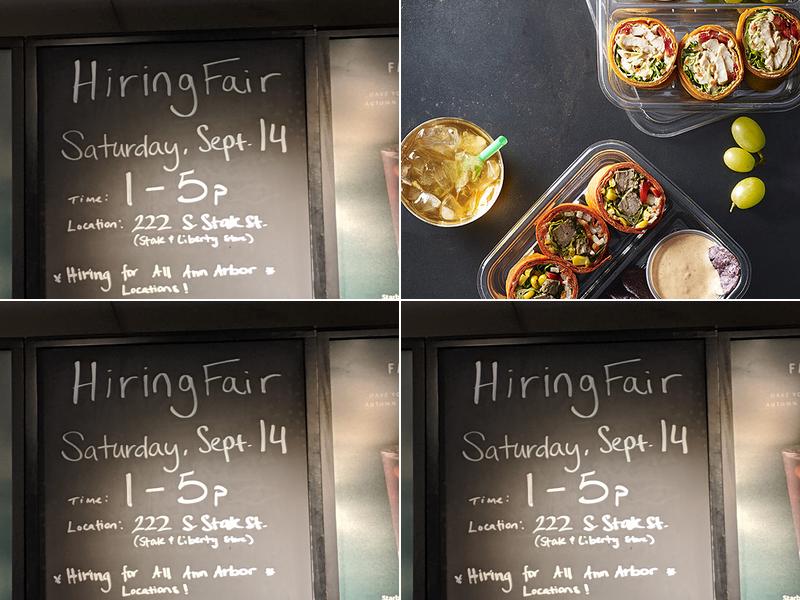 Hiring Fair
Saturday, Sept. 14
Time: 1-5p
Location: 222 S State St.
(State & Liberty Store)
* Hiring for All Ann Arbor *
Locations!
Hiring Fair
Saturday, Sept. 14
Time: 1-5p
Location: 222 S State St.
(State & Liberty Store)
* Hiring for All Ann Arbor *
Locations!
Hiring Fair
Saturday, Sept. 14
Time: 1-5p
Location: 222 S State St.
(State & Liberty Store)
* Hiring for All Ann Arbor *
Locations!